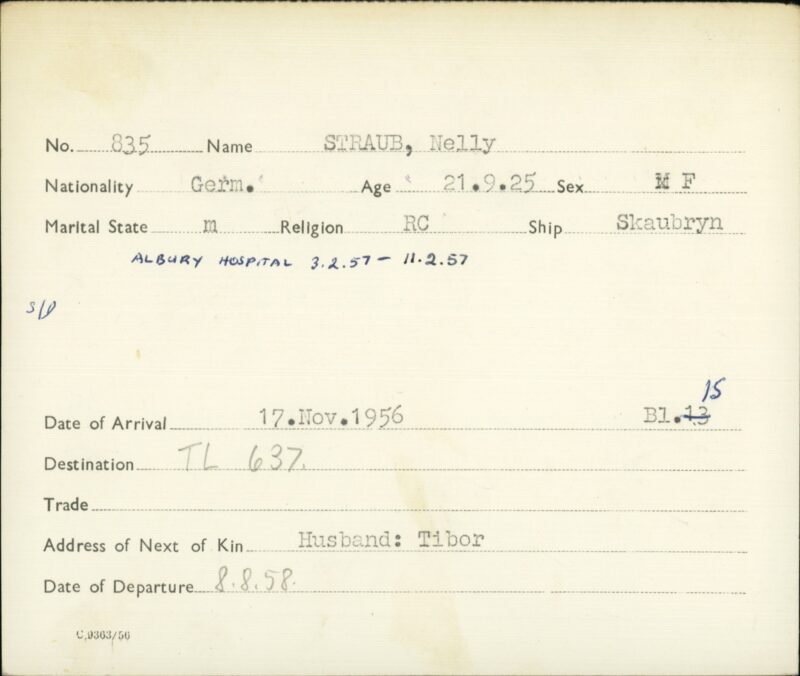 No. 835 Name STRAUB, Nelly
Nationality Germ. Age 21.9.25 Sex M F
Marital State m Religion RC Ship Skaubryn
ALBURY HOSPITAL 3.2.57 - 11.2.57
15
Date of Arrival 17.Nov.1956 Bl.13
Destination TL 637.
Trade
Address of Next of Kin Husband: Tibor
Date of Departure 8.8.58.
C.9363/56